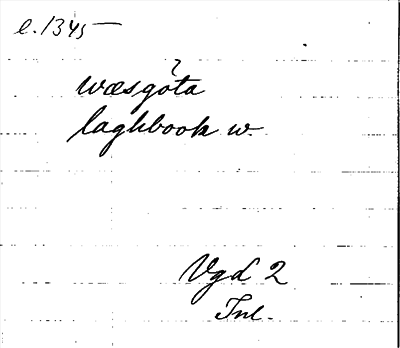 e. 1345 —
wæsgøta
laghbook w.
Vgd 2
Inl.